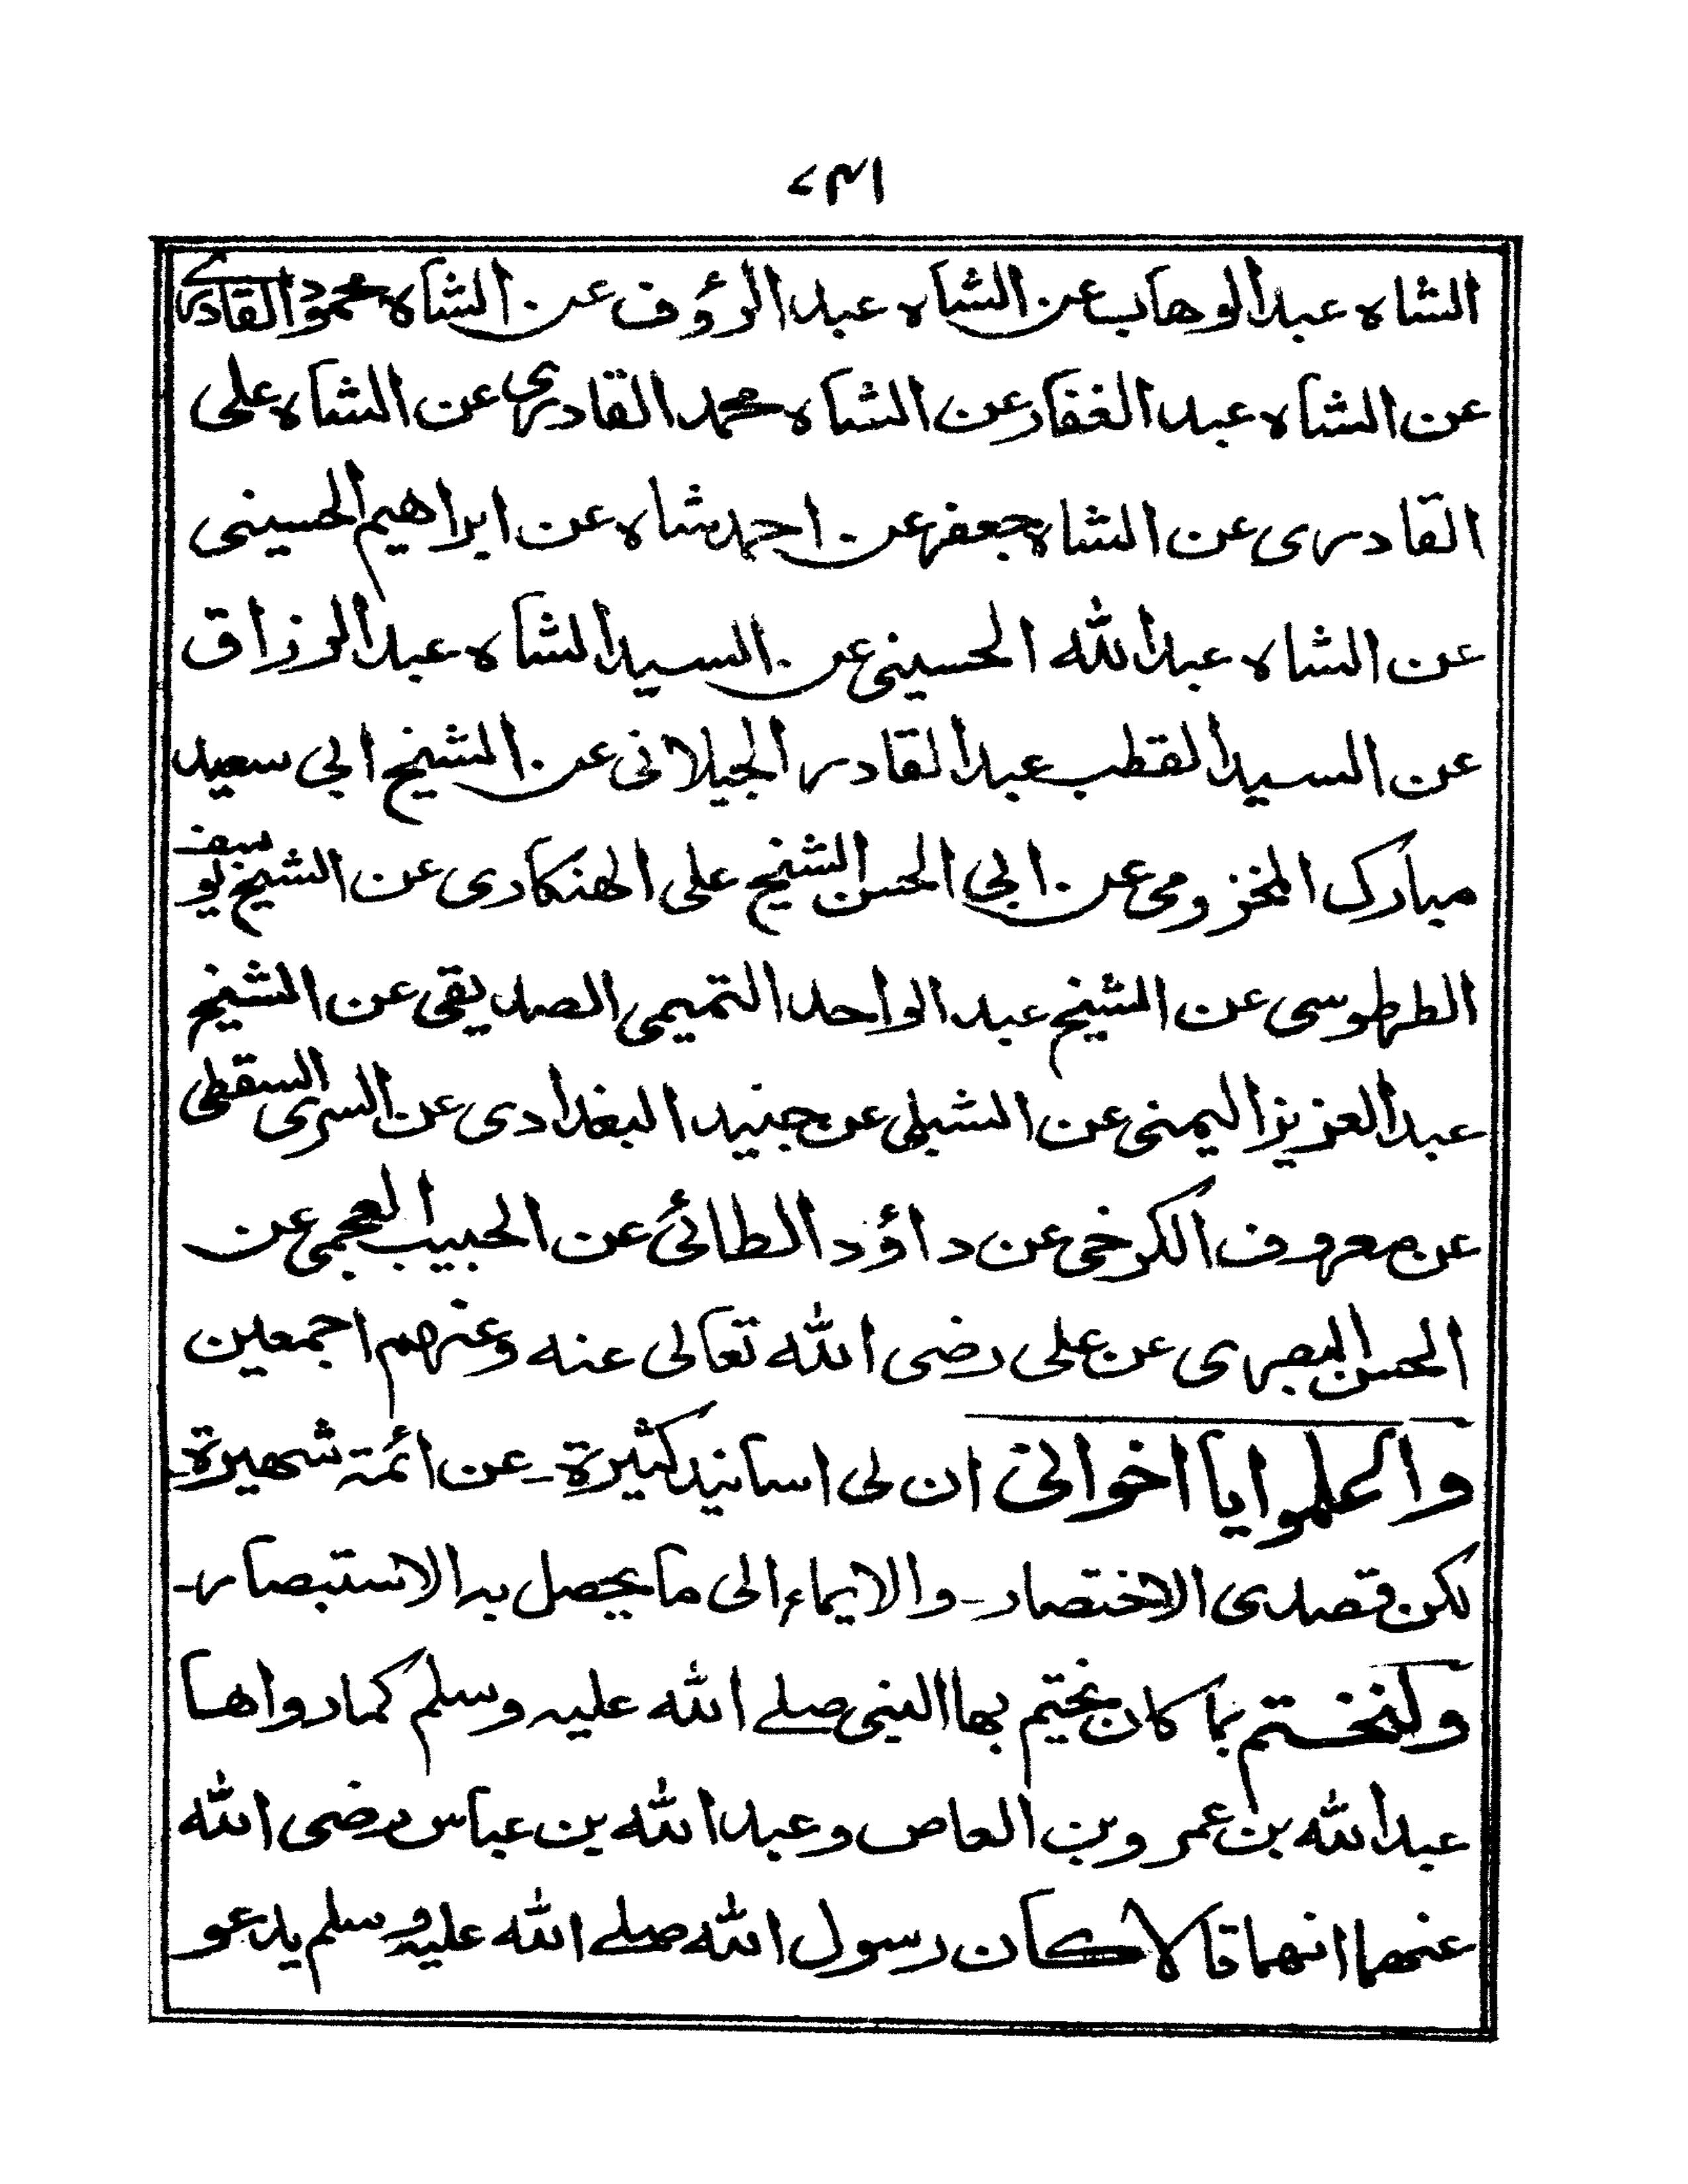 ١٣٧
الشاه عبدالوهاب عن الشاه عبدالرؤف عن الشاه محمود القادري
عن الشاه عبدالغفار عن الشاه محمد القادري عن الشاه على
القادرى عن الشاه جعفر عن احمد شاه عن ابراهيم الحسينى
عن الشاه عبدالله الحسينى عن السيد الشاه عبدالرزاق
عن السيد القطب عبدالقادر الجيلانى عن الشيخ ابى سعيد
مبارك المخزومى عن ابى الحسن الشيخ على الهنكادى عن الشيخ يوسف
الطرطوسى عن الشيخ عبدالواحد التميمى الصديقى عن الشيخ
عبدالعزيز اليمنى عن الشبلى عن جنيد البغدادى عن السرى السقطى
عن معروف الكرخى عن داؤد الطائى عن الحبيب العجمى عن
الحسن البصرى عن على رضى الله تعالى عنه وعنهم اجمعين
واعلموا يا اخوانى ان لى اسانيد كثيرة - عن ائمة شهيرة -
لكن قصدى الاختصار - والايماء الى ما يحصل به الاستبصار -
ولنختم بما كان يختم بها النبى صلے الله عليه وسلم كما رواها
عبدالله بن عمرو بن العاص وعبدالله بن عباس رضى الله
عنهما انهما قالا كان رسول الله صلے الله عليه وسلم يدعو